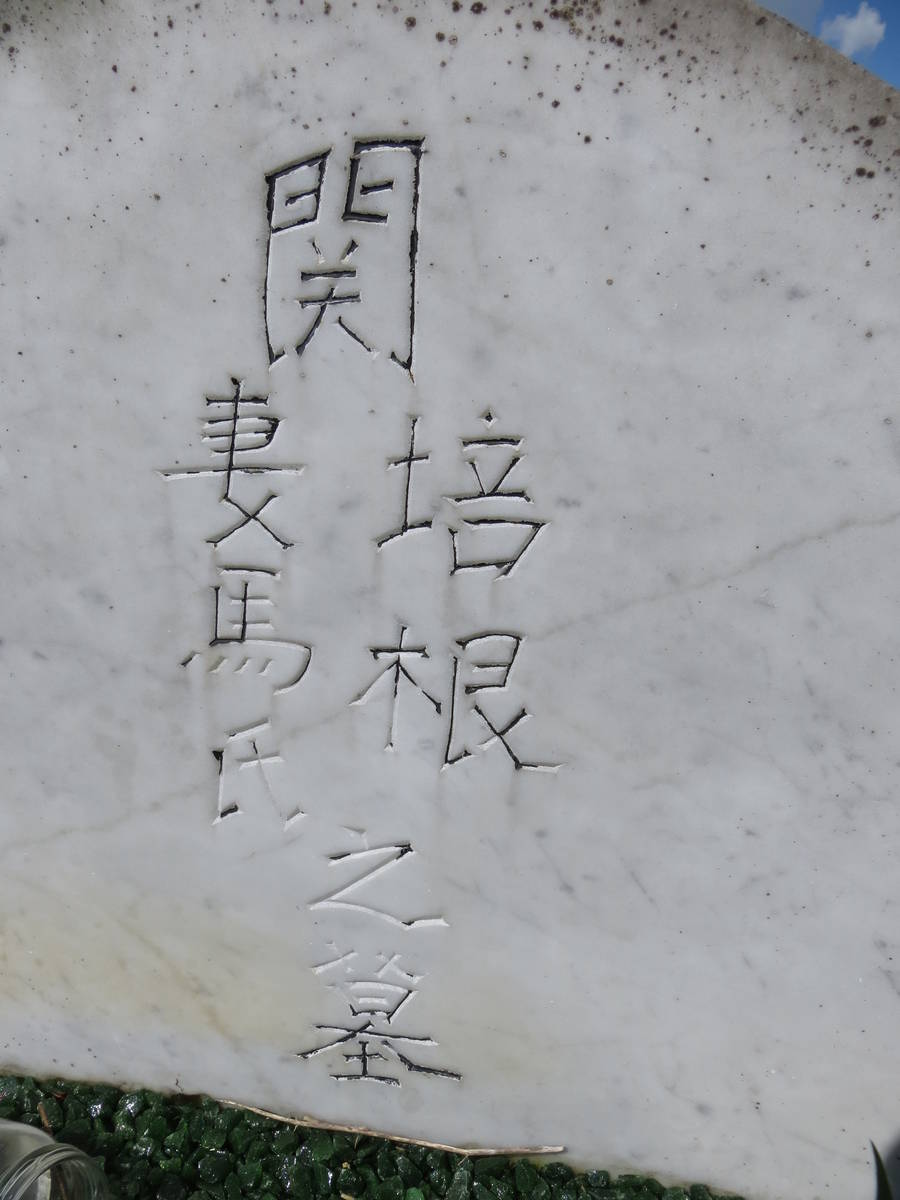 関
培根
妻馬氏
之墓